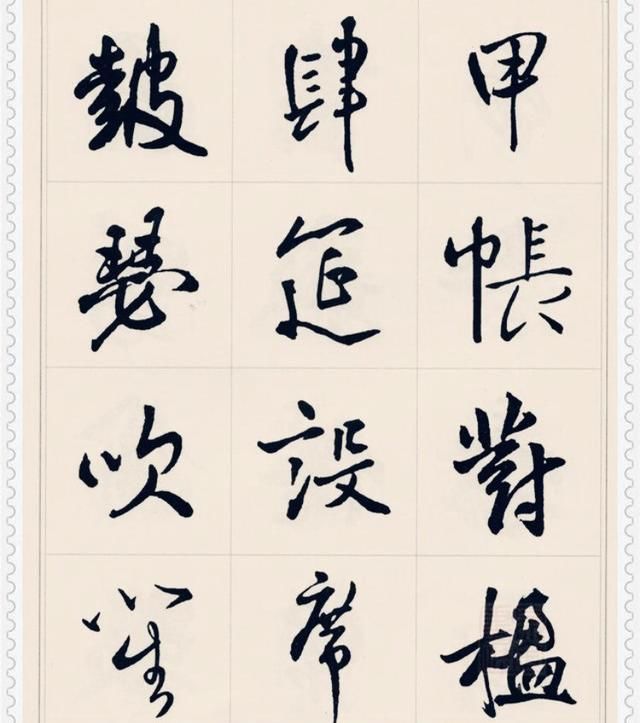 甲帳對楹
肆筵設席
鼓瑟吹笙